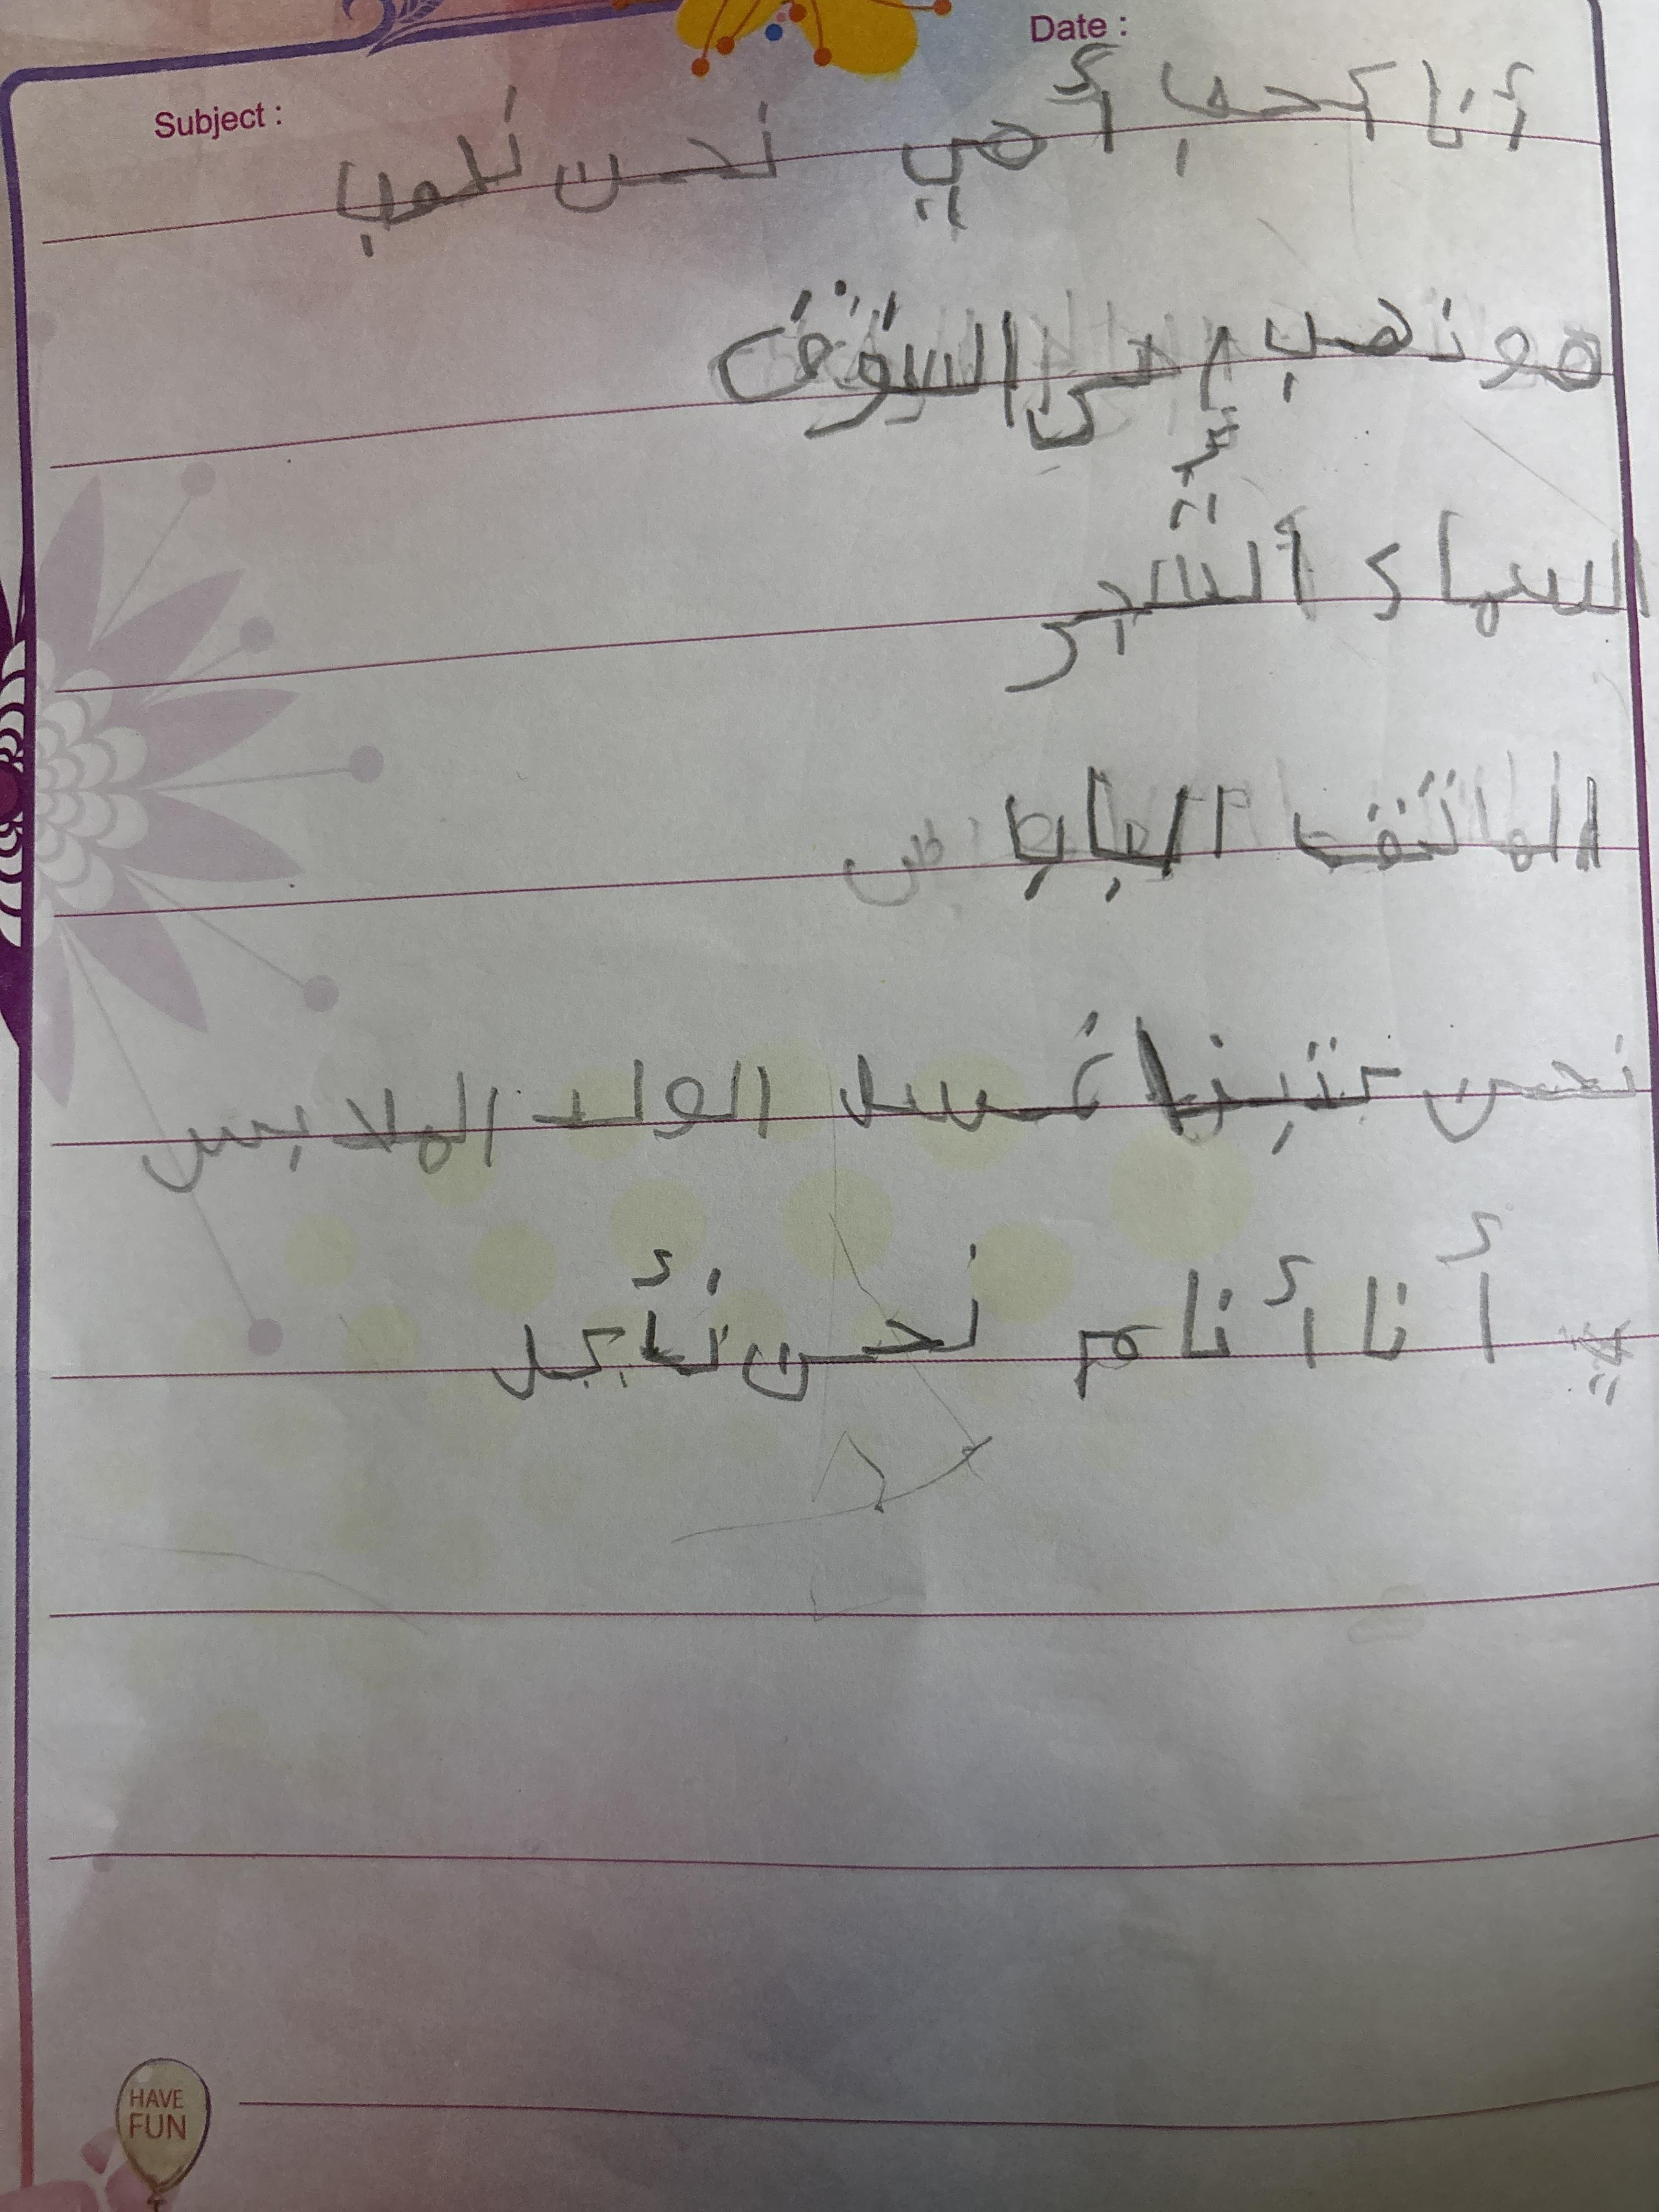 Date :
Subject :
أنا أحب أمي نحن نلعب
هو ذهب إلى السوق
السماء الشجر
الهاتف الباب
نحن بيتنا غسل الولد الملابس
أنا أنام نحن نأكل
HAVE
FUN